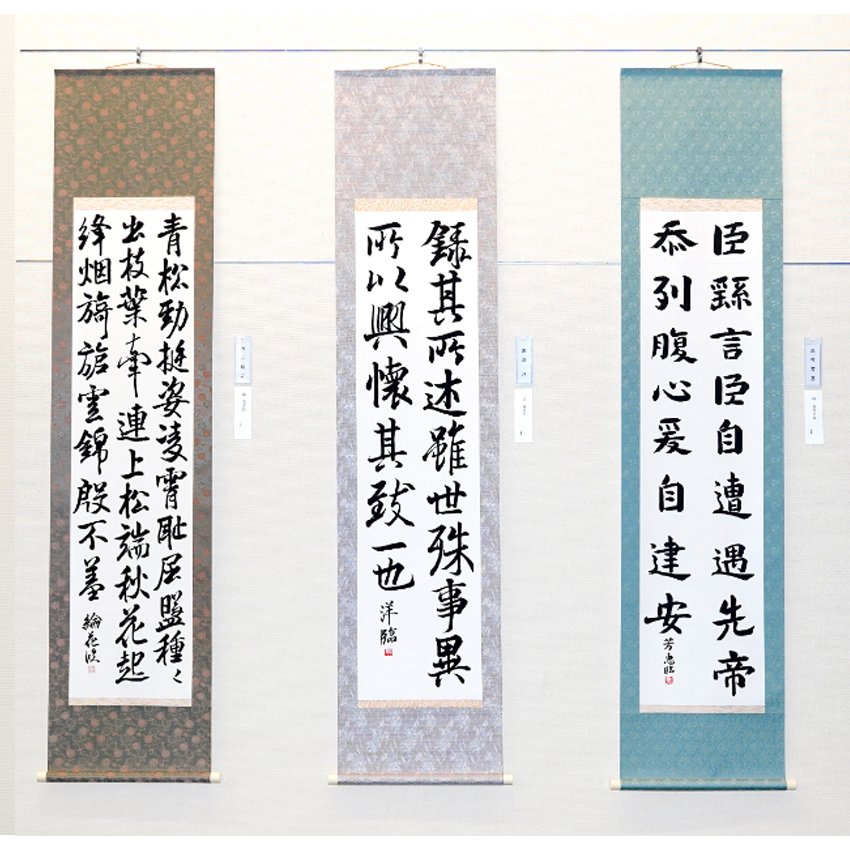 臣繇言臣自遭遇先帝
忝列腹心爰自建安
芳忠臨
録其所述雖世殊事異
所以興懷其致一也
洋臨
青松勁挺姿凌霄耻屈盤種々
出枝葉牽連上松端秋花起
絳烟旖旎雲錦殷不羞